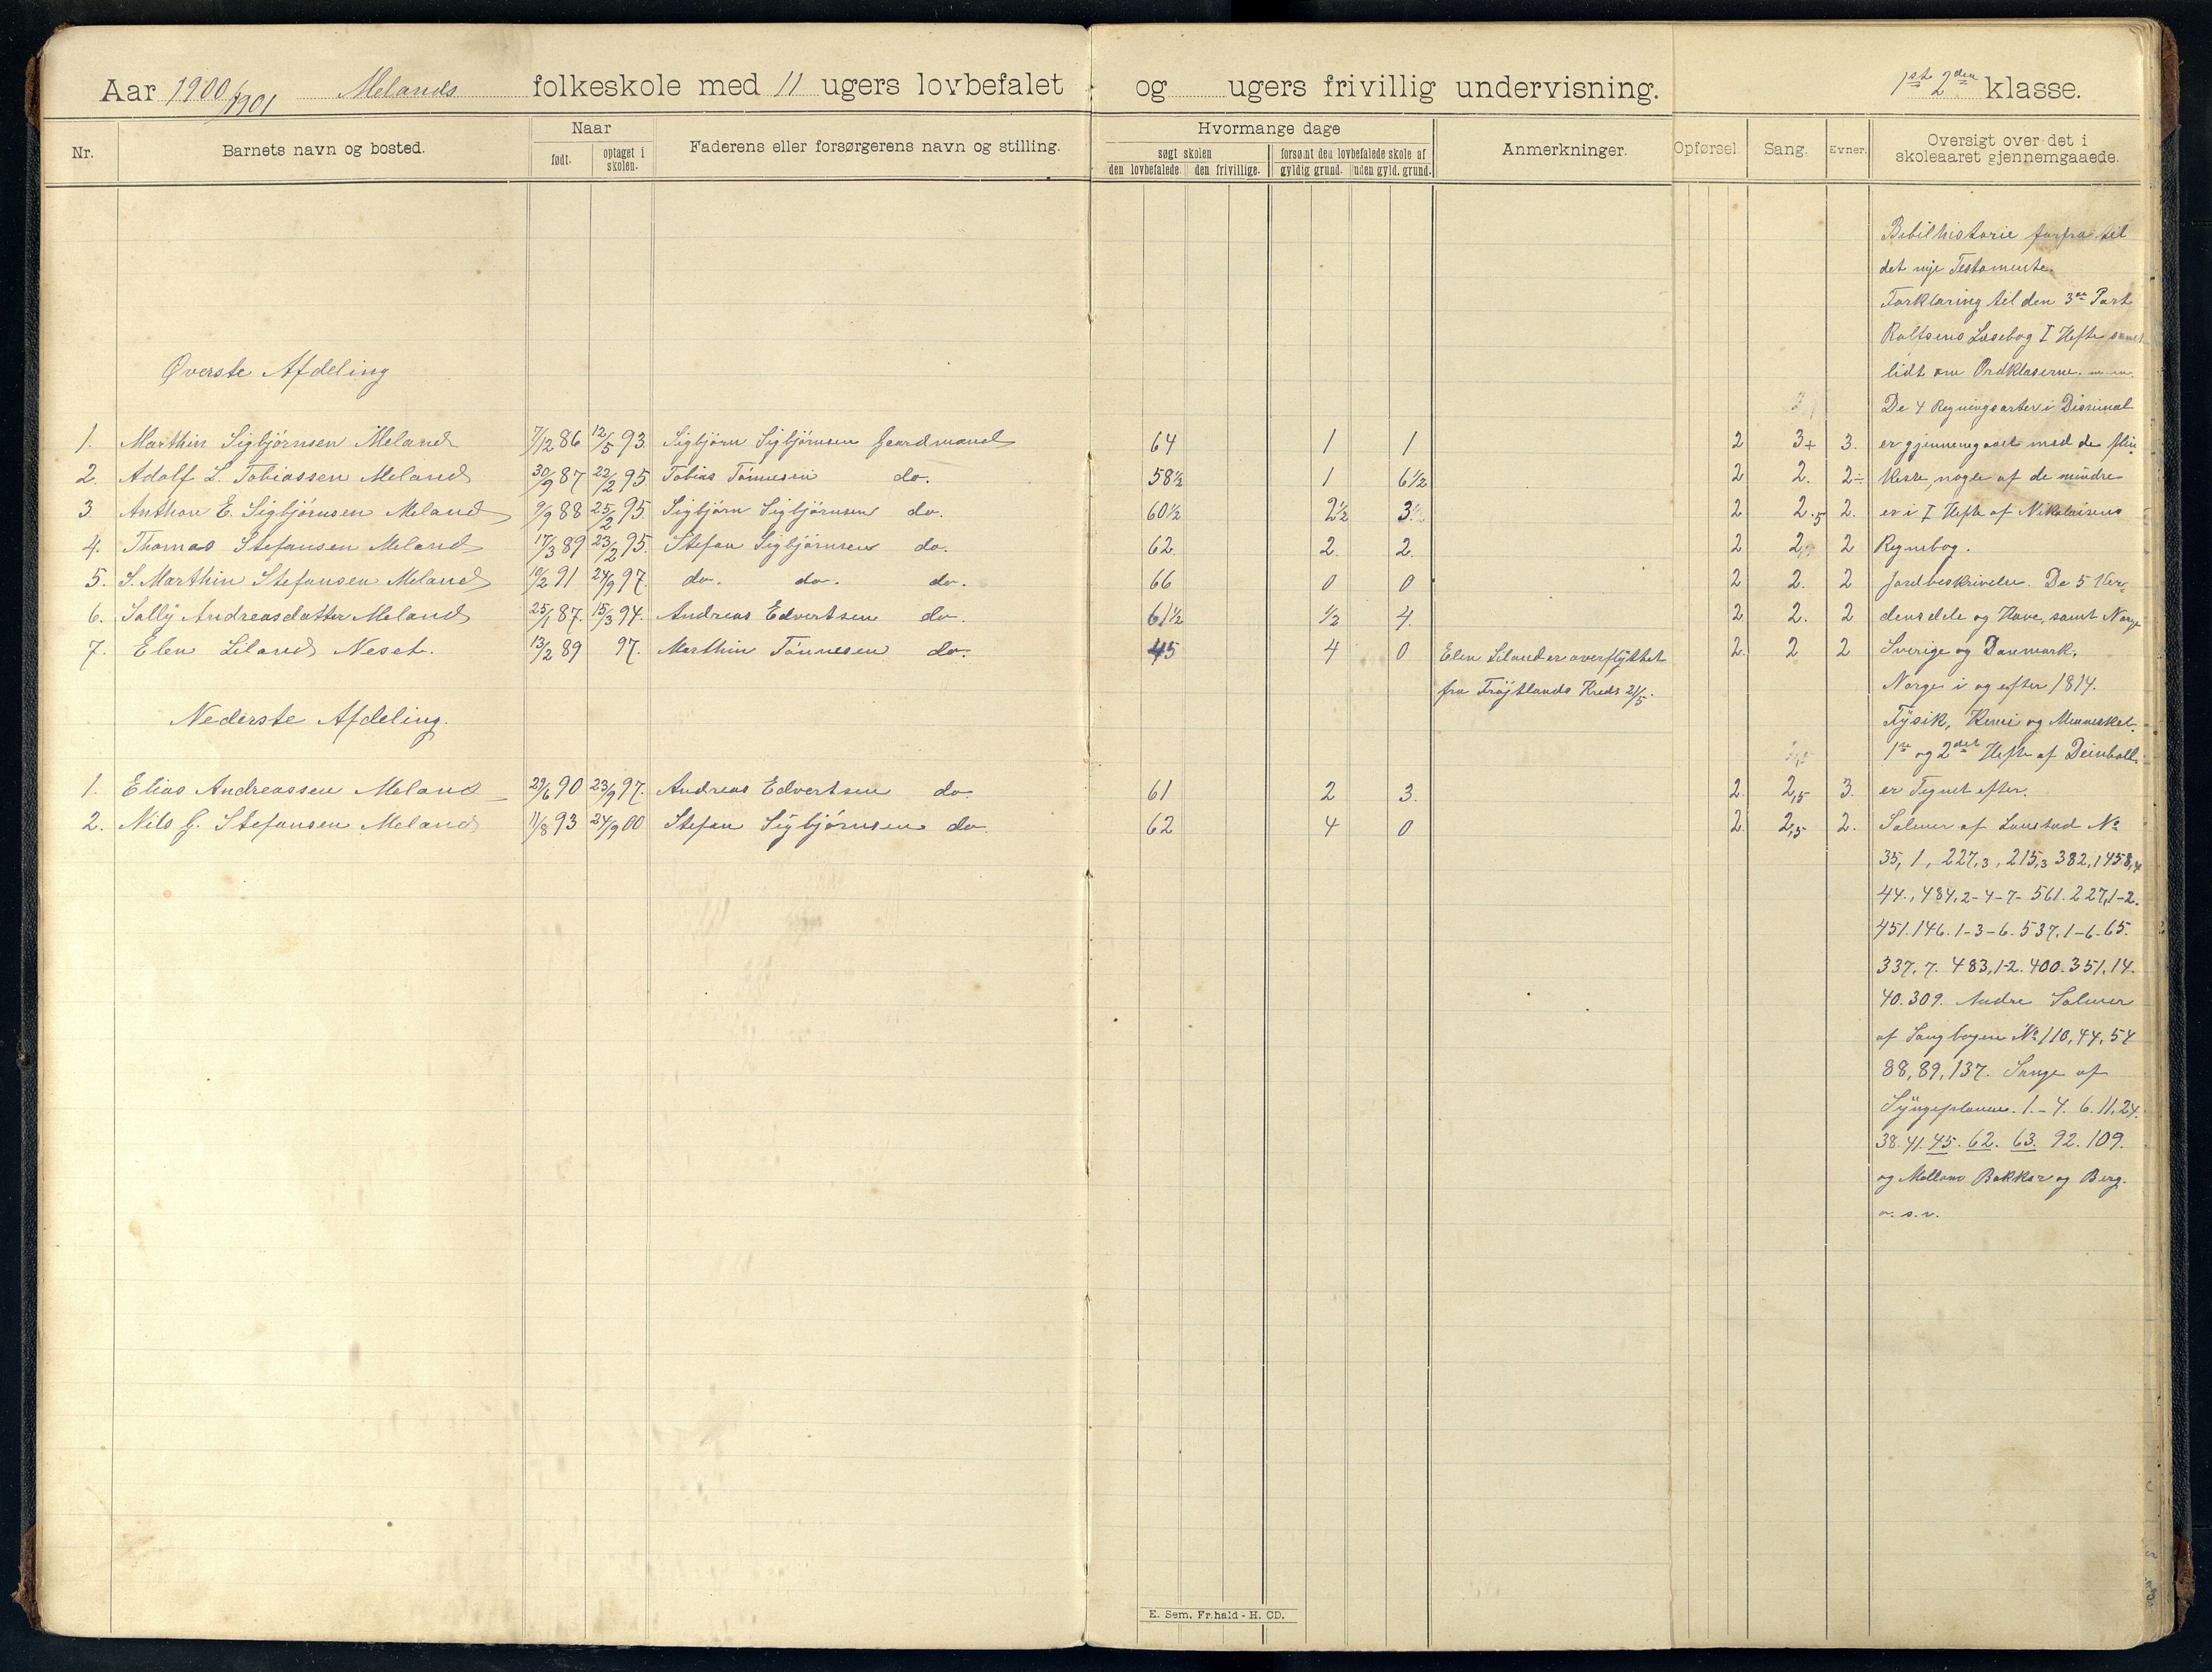 Aar 1900/1901 Melands folkeskole med 11 ugers lovbefalet og ugers frivillig undervisning. 1ste 2den klasse.
Nr. Barnets navn og bosted. Naar født. optaget i skolen. Faderens eller forsørgerens navn og stilling. Hvormange dage søgt skolen den lovbefalede den frivillige. forsømt den lovbefalede skole af gyldig grund. uden gyld. grund. Anmerkninger. Opførsel Sang. Evner. Oversigt over det i skoleaaret gjennemgaaede.
Øverste Afdeling
1. Marthin Sigbjørnsen Meland 7/12 86 12/5 93. Sigbjørn Sigbjørnsen Gaardmand 64 1 1 2 3+ 3.
2. Adolf L. Tobiassen Meland 30/9 87 22/2 95 Tobias Tønnesen do. 58½ 1 6½ 2 2. 2÷
3 Anthon E. Sigbjørnsen Meland 9/9 88 25/2 95. Sigbjørn Sigbjørnsen do. 60½ 2½ 3½ 2 2.5 2.
4. Thomas Stefansen Meland 17/3 89 23/2 95. Stefan Sigbjørnsen do. 62 2. 2. 2 2, 2
5. S. Marthin Stefansen Meland 10/2 91 24/9 97. do. do. do. 66 0 0 2 2. 2
6. Sally Andreasdatter Meland 25/1 87. 15/3 94. Andreas Edvertsen do. 61½ ½ 4. 2 2. 2
7. Elen Liland Neset. 13/2 89 97. Marthin Tønnesen do. 45 4 0 Elen Liland er overflyttet 2. 2 2
fra Frøjtlands Kreds 21/5.
Nederste Afdeling.
1. Elias Andreassen Meland 29/6 90 23/9 97. Andreas Edvertsen do. 61 2 3. 2. 2,5 3.
2. Nils G. Stefansen Meland 11/8 93 24/9 00 Stefan Sigbjørnsen do. 62 4 0 2. 2,5 2.
Bibelhistorie forfra til
det nye Testamente.
Forklaring til den 3die Part
Roltsens Læsebog I Hefte samt
lidt om Ordklaserne. m. m.
De 4 Regningsarter i Disimal
er gjennemgaaet med de flin
keste, nogle af de mindre
er i I Hefte af Nikolaisens
Regnebog.
Jordbeskrivelse. De 5 Ver-
densdele og Have, samt Norge
Sverige og Danmark.
Norge i og efter 1814.
Fysik, Kemi og Mennesket.
1ste og 2det Hefte af Deinboll
er Tegnet efter.
Salmer af Lanstad No
35, 1, 227,3, 215,3 382,1 458,4
44., 484,2-4-7- 561. 227,1-2.
451. 146. 1-3-6. 537, 1-6-65.
337, 7. 483, 1-2. 400. 351, 14.
40. 309. Andre Salmer
af Sangbogen No 110, 44, 54
88, 89, 137. Sange af
1.-4. 6. 11. 24.
38. 41. 45. 62. 63. 92. 109.
og Mellom Bakkar og Berg.
o. s. v.
E. Sem, Fr.hald - H. CD.